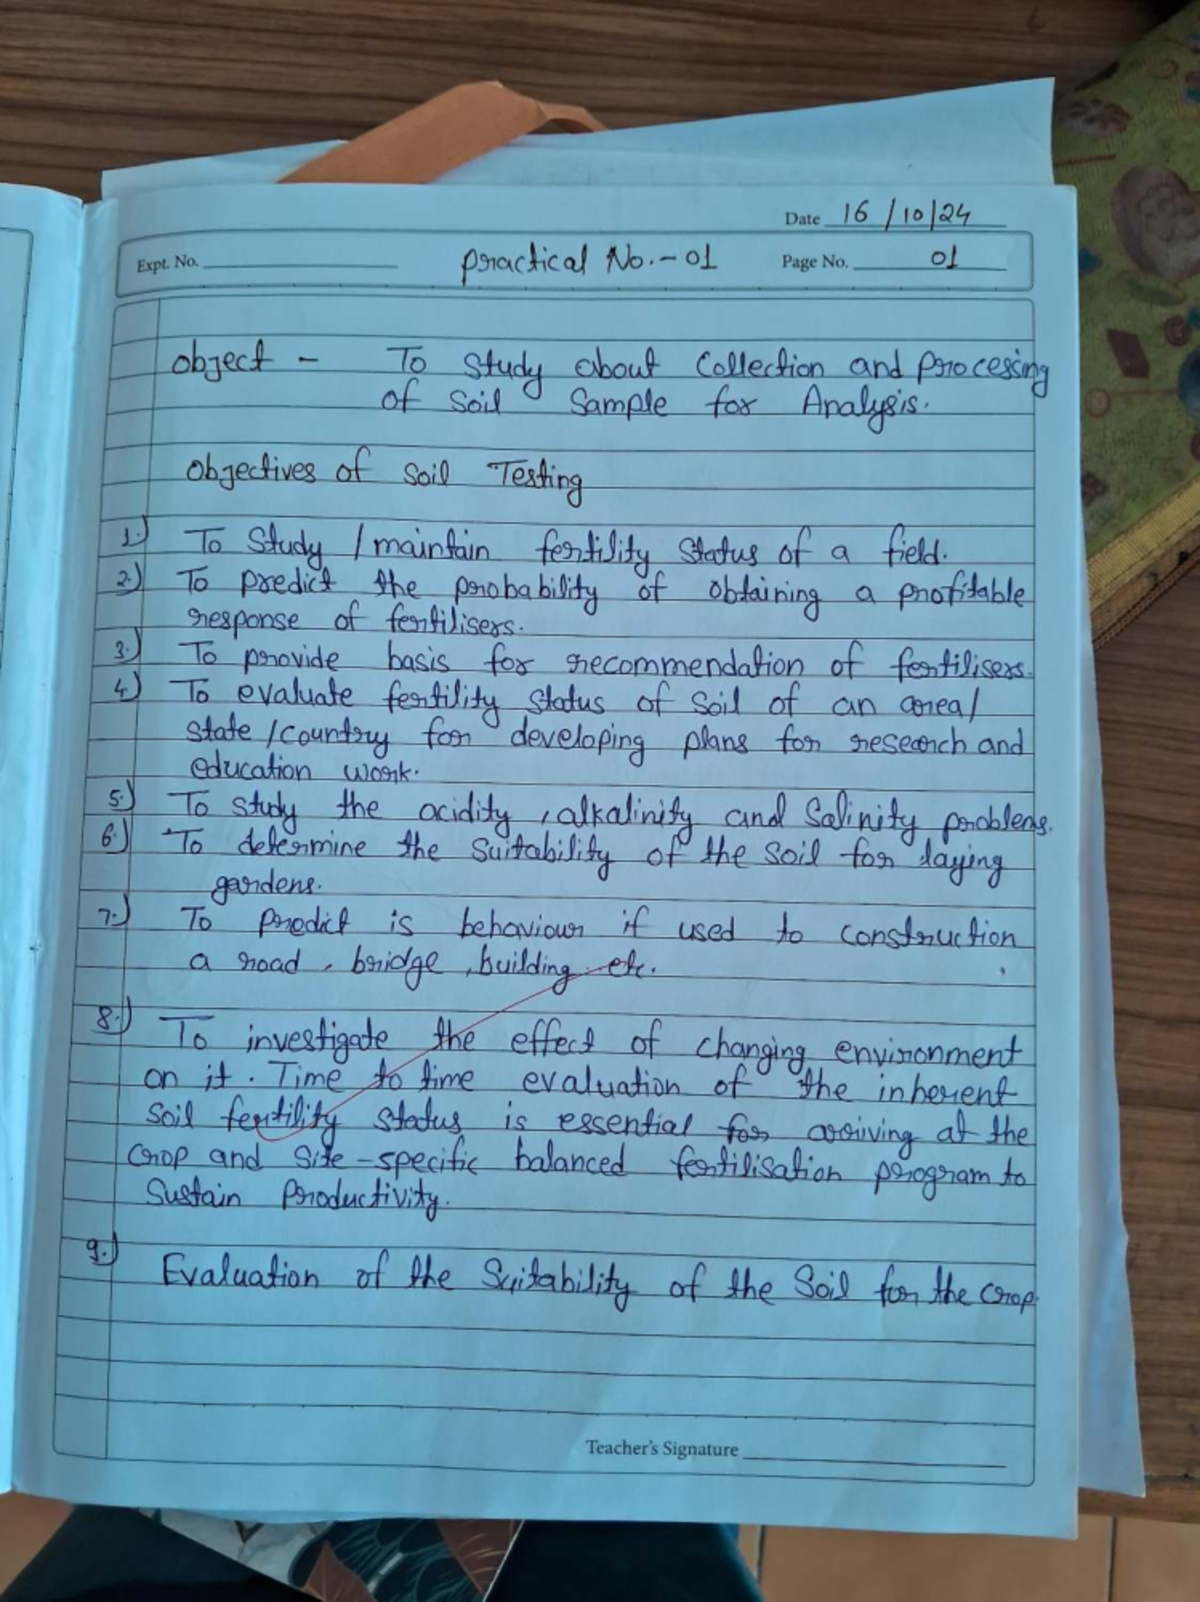 Date 16/10/24
Expt. No. Practical No.-01 Page No. 01
Object - To Study about Collection and Processing
of Soil Sample for Analysis.
Objectives of Soil Testing
1.) To Study / maintain fertility Status of a field.
2.) To predict the probability of obtaining a profitable
response of fertilisers.
3.) To provide basis for recommendation of fertilisers.
4.) To evaluate fertility Status of Soil of an area/
state /country for developing plans for research and
education work.
5.) To study the acidity, alkalinity and Salinity problems.
6.) To determine the Suitability of the Soil for laying
gardens.
7.) To predict is behaviour if used to construction
a road, bridge, building etc.
8.) To investigate the effect of changing environment
on it. Time to time evaluation of the inherent
Soil fertility status is essential for arriving at the
Crop and Site-specific balanced fertilisation program to
Sustain Productivity.
9.) Evaluation of the Suitability of the Soil for the crop
Teacher's Signature